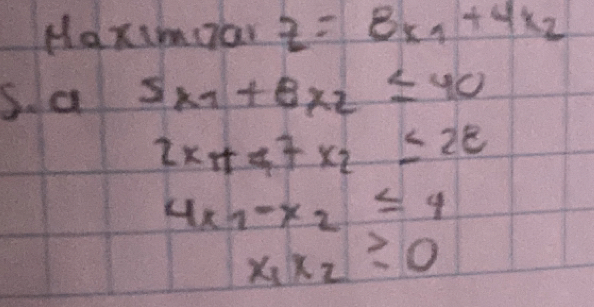 Maximizar Z = 8x1 + 4x2
S. a 5x1 + 8x2 ≤ 40
2x1 + 7x2 ≤ 28
4x1 - x2 ≤ 4
x1 x2 ≥ 0